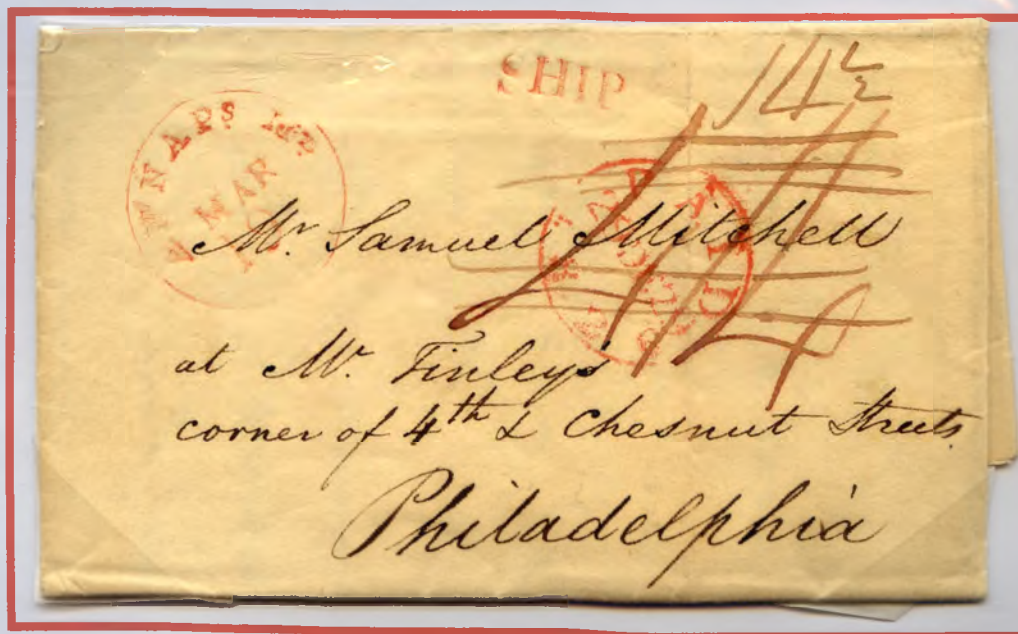 SHIP
14½
ANNAPs Md
MAR
PAID
Mr. Samuel Mitchell
at Mr. Finley's
corner of 4th & Chesnut Streets
Philadelphia